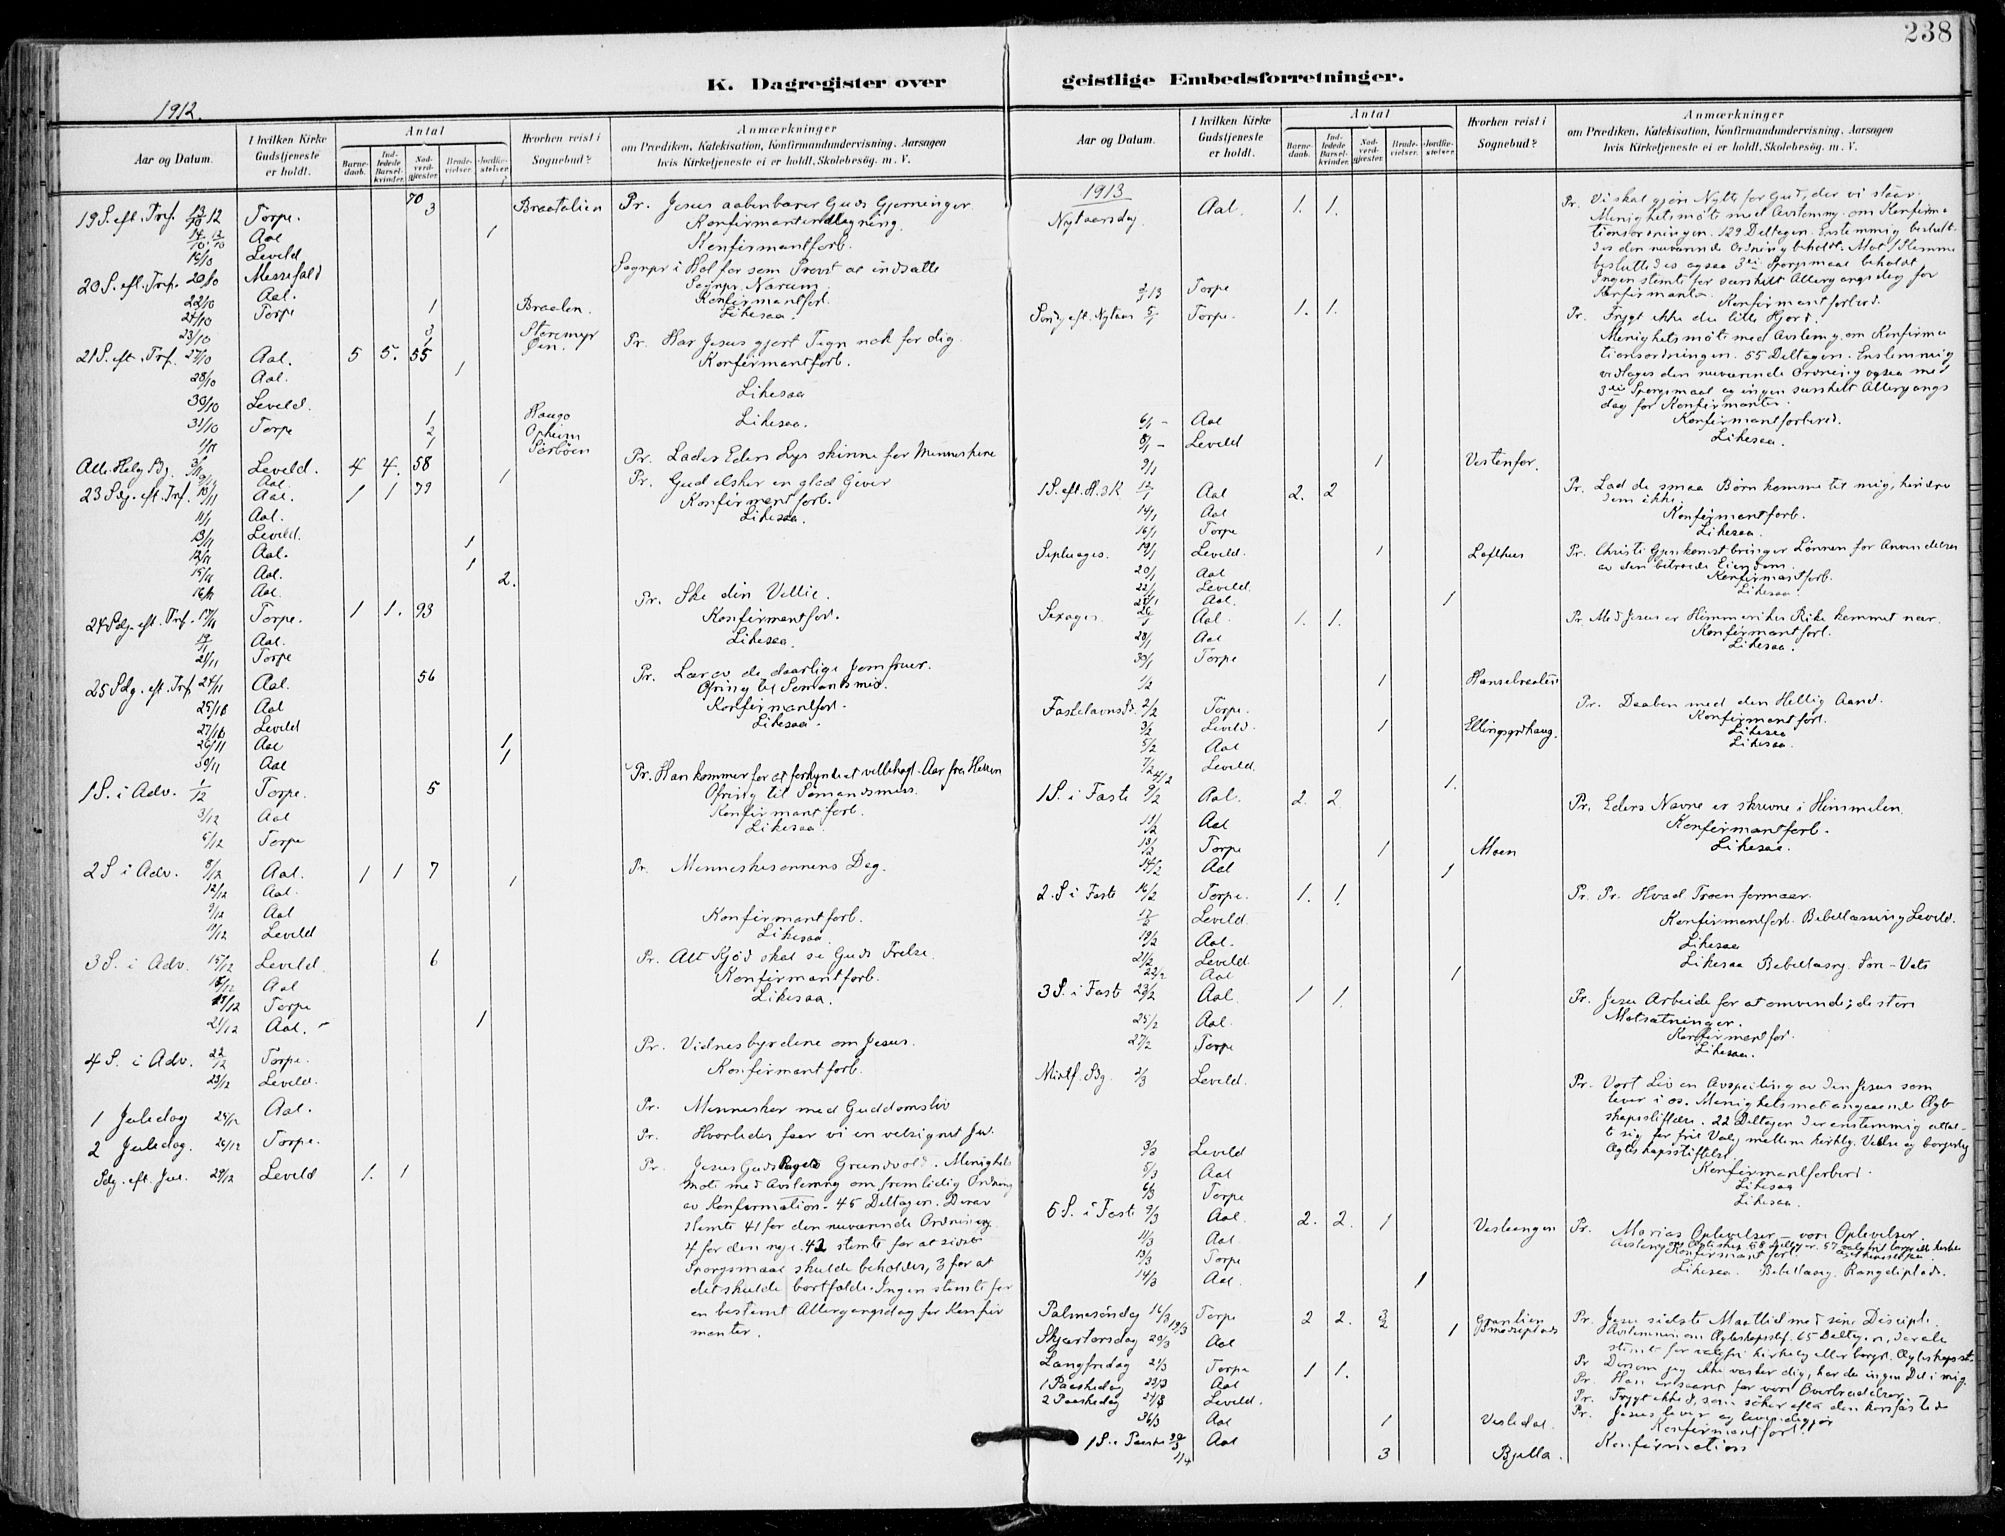 238
K. Dagregister over
1912.
Aar og Datum.
I hvilken Kirke Gudstjeneste er holdt.
Antal
Barnedaab.
Indledede Barselkvinder.
Nadverdgjæster.
Brudevielser.
Jordfæstelser.
Hvorhen reist i Sognebud?
Anmærkninger
om Prædiken, Katekisation, Konfirmandundervisning, Aarsagen
hvis Kirketjeneste ei er holdt, Skolebesøg. m. V.
19 S. eft. Tref. 13/10 12 Torpe. 70 3 Braatalien Pr. Jesus aabenbarer Guds Gjerninger.
Aal 1 Konfirmantindtagning.
Leveld Konfirmantforb.
20 S. eft. Tref. 20/10 Messefald Sognpr i Hol for som Provst at indsætte
Sognpr. Narum.
22/10 Aal. 1 Braalen. Konfirmantforb.
24/10 Torpe Likesaa.
23/10 3 Storemyr
21 S. eft. Tref. 27/10 Aal. 5 5. 55 Øen. Pr. Har Jesus gjort Tegn nok for dig.
28/10 Aal. 1 Konfirmantforb.
30/10 Leveld. Likesaa
31/10 Torpe 1 Haugo Likesaa.
2 Opheim
1/11 1 Sörböen
All. Helg. Sdg. 3/11 Leveld. 4 4. 58 Pr. Lader Eders Lys skinne for Menneskene
Aal. 1
23 Sdg. eft. Tref. 10/11 Aal. 1 1 79 Pr. Gud elsker en glad Giver
11/11 Aal. Konfirmantforb.
13/11 Leveld. Likesaa.
Aal. 1
15/11 Aal. 1
16/11 Aal. 2.
24 Sdg. eft. Tref. 17/11 Torpe. 1 1. 93 Pr. Ske din Villie.
19/11 Aal. Konfirmantfor.
21/11 Torpe Likesaa
25 Sdg. eft. Tref 24/11 Aal. 56 Pr. Lær av de daarlige Jomfruer.
Ofring til Sømandsmis.
25/11 Aal Konfirmantfor.
27/11 Leveld Likesaa.
26/11 Aal 1
30/11 Aal 1
1 S. i Adv. 1/12 Torpe. 5 Pr. Han kommer for at forkynde et velbehagl. Aar fra Herren
Ofring til Sømandsmiss.
3/12 Aal Konfirmantforb.
5/12 Torpe Likesaa.
2 S i Adv. 8/12 Aal. 1 1 7 Pr. Menneskesønnens Dag.
12/12 Aal. 1
9/12 Aal Konfirmantforb.
11/12 Leveld Likesaa
3 S. i Adv. 15/12 Leveld. 6 Pr. Alt Kjød skal se Guds Frelse.
Aal Konfirmantforb.
Torpe Likesaa.
21/12 Aal. 1
4 S. i Adv. 22/12 Torpe. Pr. Vidnesbyrdene om Jesus.
23/12 Leveld. Konfirmantforb.
1 Juledag 25/12 Aal. Pr. Mennesker med Guddomsliv
2 Juledag. 26/12 Torpe. Pr. Hvorledes faar vi en velsignet Jul.
Sdg. eft. Jul. 29/12 Leveld 1. 1 Pr. Jesus Guds Rikes Grundvold. Menighets
møte med Avstemning om fremtidig Ordning
av Konfirmation. 45 Deltagere. Derav
stemte 41 for den nuværende Ordning
4 for den nye. 42 stemte for at sidste
Spørgsmaal skulde beholdes, 3 for at
det skulde bortfalde. Ingen stemte for
en bestemt Altergangsdag for Konfir
manter.
geistlige Embedsforretninger.
Aar og Datum.
I hvilken Kirke Gudstjeneste er holdt.
Antal
Barnedaab.
Indledede Barselkvinder.
Nadverdgjæster.
Brudevielser.
Jordfæstelser.
Hvorhen reist i Sognebud?
Anmærkninger
om Prædiken, Katekisation, Konfirmandundervisning, Aarsagen
hvis Kirketjeneste ei er holdt, Skolebesøg. m. V.
1913
Nytaarsdag Aal. 1. 1. Pr. Vi skal gjøre Nytte for Gud, der vi staar.
Menighetsmøte med Avstemng. om Konfirma
tionsordningen. 129 Deltagere. Enstemmig beslutt-
des den nuværende Ordning beholdt. Mot 1 Stemme
besluttedes ogsaa 3die Spørgsmaal beholdt.
Ingen stemte for særskilt Altergangsdag for
Konfirmanter.
2/1 13 Torpe Konfirmantforbered.
Sönd. eft. Nytaar 5/1 Torpe. 1. 1. Pr. Frygt ikke du lille Hjord.
Menighetsmøte med Avstemng. om Konfirma
tionsordningen. 55 Deltagere. Enstemmig
vedtages den nuværende Ordning ogsaa med
3die Spørgsmaal og ingen særskilt Altergangs
dag for Konfirmanter.
6/1 - Aal Konfirmantforbered.
8/1 - Leveld Likesaa.
9/1 1 Vestenfor.
1 S. eft. H. 3 K 12/1 Aal 2. 2 Pr. Lad de smaa Børn komme til mig, hindrer
dem ikke.
14/1 Aal Konfirmantforb.
16/1 Torpe Likesaa.
Septuages. 19/1 Leveld. 1 Lofthus Pr. Christi Gjenkomst bringer Lønnen for Anvendelsen
av den betroede Eiendom.
20/1 Aal Konfirmantforb.
22/1 Leveld. Likesaa
Aal. 1
Sexages. 26/1 Aal. 1. 1. Pr. Med Jesus er Himmeriket Rike kommet nær.
28/1 Aal Konfirmantforb.
30/1 Torpe Likesaa.
1/2 1
Fastelavnssd. 2/2 Torpe. Pr. Daaben med den Hellig Aand.
3/2 Leveld. 1 Konfirmantforb.
5/2 Aal Likesaa
7/2 Leveld. Likesaa.
1.
1 S. i Faste 9/2 Aal. 2. 2. Pr. Eders Navne er skrevne i Himmelen.
11/2 Aal Konfirmantforb.
13/2 Torpe 1 Moen Likesaa.
14/2 Aal 1
2. S. i Faste 16/2 Torpe. 1. 1. Pr. Pr. Hvad Troen formaar.
17/2 Leveld. Konfirmantforb. Bibellæsning Leveld.
19/2 Aal. Likesaa
21/2 Leveld. Likesaa Bibellæsng. Sön-Vats
22/2 Aal 1
3 S. i Faste 23/2 Aal. 1 1. Pr. Jesu Arbeide for at omvende; de store
Motsætninger.
25/2 Aal. Konfirmantfor.
27/2 Torpe Likesaa.
Midtf. Sdg. 2/3 Leveld. Pr. Vort Liv en Avspeiling av den Jesus som
lever i os. Menighetsmøte angaaende Ægte
skapsstiftelse. 22 Deltagere der enstemmig uttal-
te sig for frit Valg mellem kirkelg. Vielse og borgerlig
Ægteskapsstiftelse.
3/3 Leveld Konfirmantforbered.
5/3 Aal Likesaa
6/3 Torpe Likesaa.
5 S. i Faste 9/3 Aal. 2. 2. 1 Vesleengen Pr. Marias Oplevelser - vore Oplevelser.
11/3 Aal Konfirmantforb.
13/3 Torpe Likesaa. Bibellæsng.
14/3 Aal. 1
Palmesöndag 16/3 Torpe 2 2. Pr. Jesu sidste Maaltid med sine Disciple.
19/3 1 Avstemnen. om Ægteskapsstif. 65 Deltagere, der alle
Skjærtorsdag 20/3 Aal stemte for valgfri kirkelig eller borgerl. Ægteskapsst.
Langfredag 21/3 Torpe 1 1. Pr. Dersom jeg ikke vasker dig, har du ingen Del i mig.
1 Paaskedag 23/3 Aal Pr. Han er saaret for vore Overtrædelser.
2 Paaskedag 24/3 Leveld. Pr. Frygt ikke I, som søker efter den korsfæstede
Pr. Jesus lever og levendegjør
26/3 Aal 1 Vesledal. Konfirmantforb.
1 S. e Paaske 30/3 Aal Konfirmation
1/4 3 Bjella.